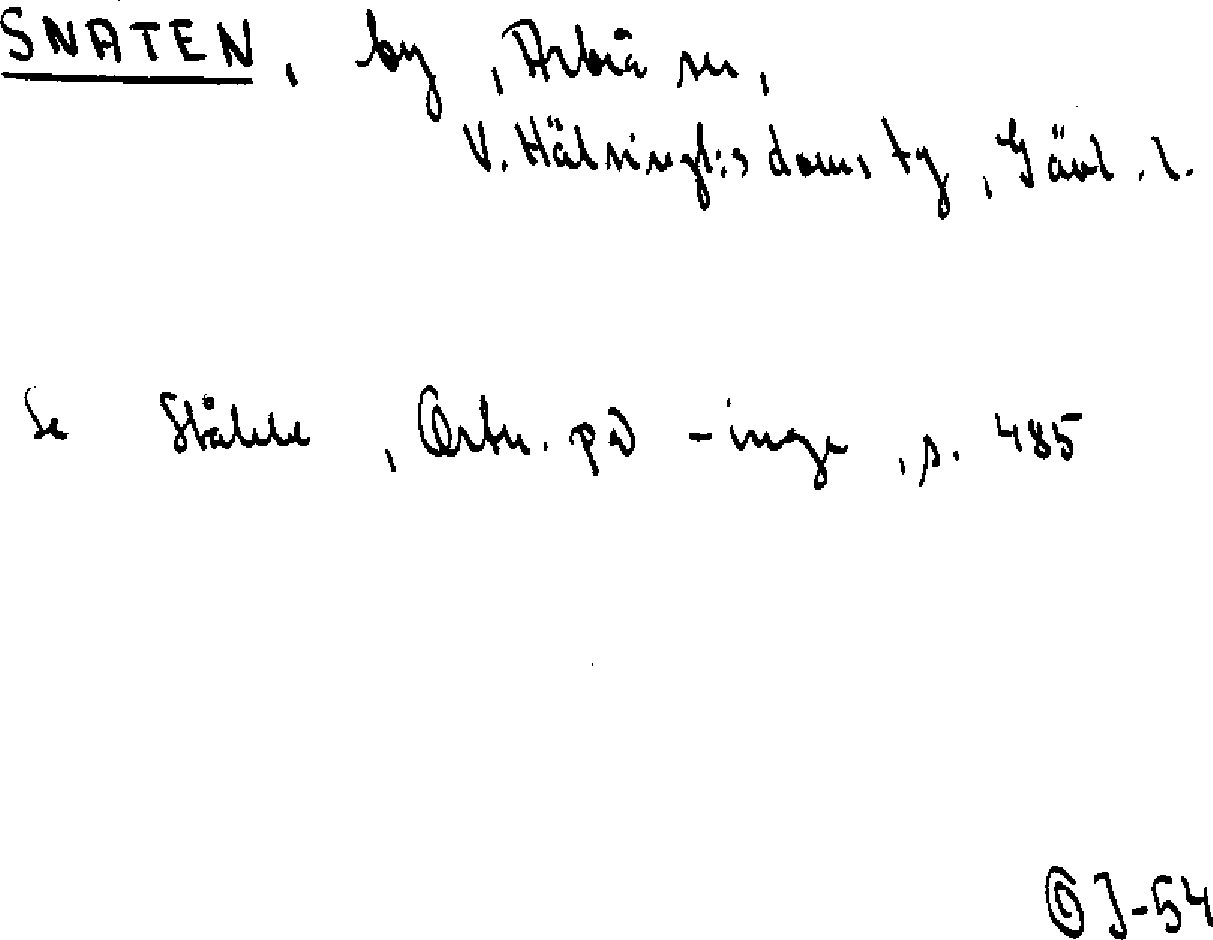 SNATEN, by, Arbrå sn,
V. Hälsingl:s doms tg, Gävl. l.
Se Ståhle, Ortn. på -inge, s. 485
ÖJ-54